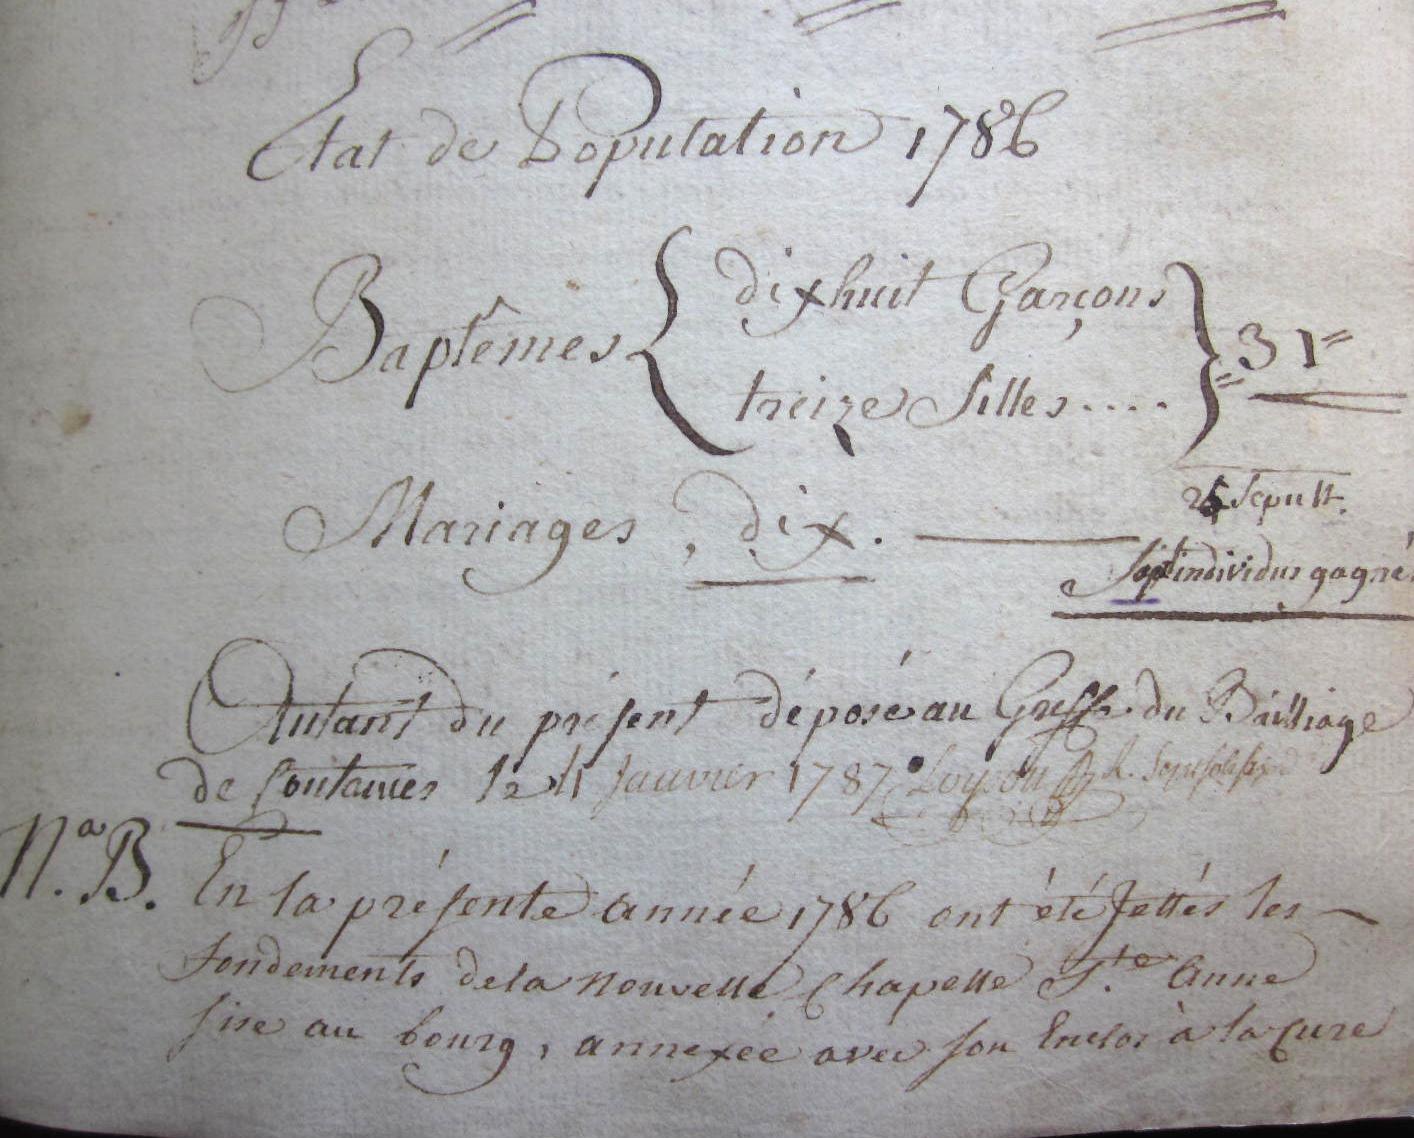 Etat de Population 1786
Baptêmes { dixhuit Garçons
treize filles.... } = 31=
Mariages, dix.
Sepult.
individus gagnés
Autant du présent déposé au Greffe du Bailliage
de Coutances le 11 Janvier 1787.
Na. B. En la présente année 1786 ont été Jettés les
fondements de la nouvelle Chapelle S.te Anne
sise au bourg, annexée avec son Enclos à la Cure